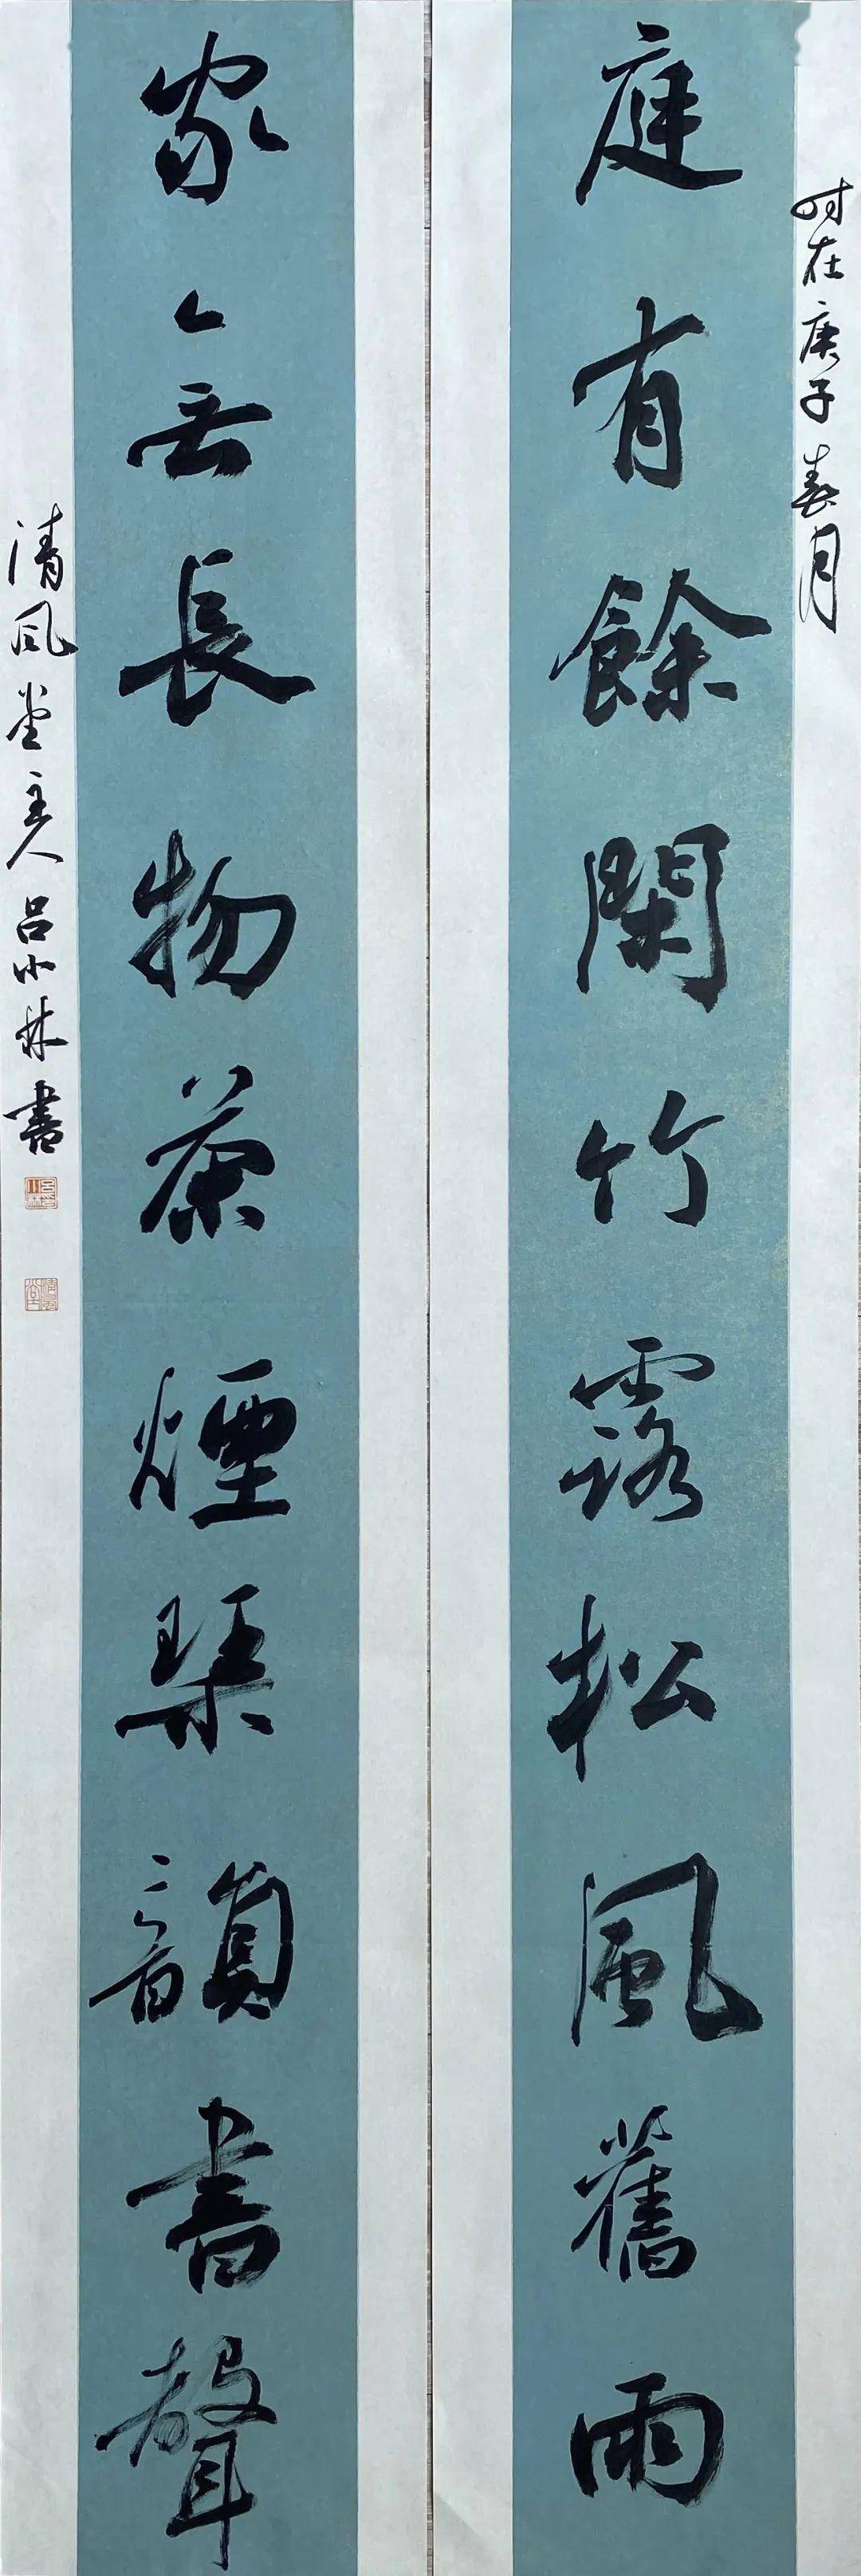 时在庚子春月
庭有餘閑竹露松風舊雨
家無長物茶煙琴韻書聲
清風堂主人吕小林書